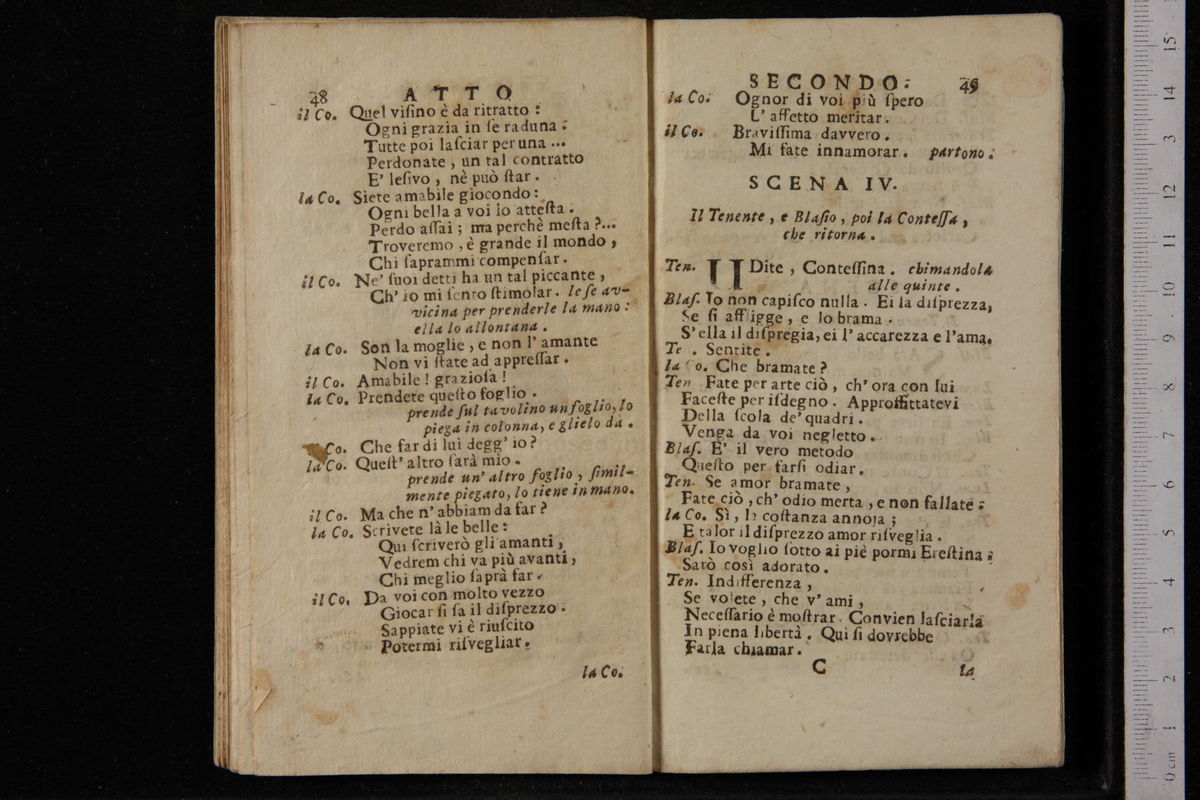 48 ATTO
il Co. Quel viſino è da ritratto:
Ogni grazia in ſe raduna:
Tutte poi laſciar per una ...
Perdonate, un tal contratto
E' leſivo, nè può ſtar.
la Co. Siete amabile giocondo:
Ogni bella a voi io atteſta.
Perdo aſſai; ma perchè meſta?...
Troveremo, è grande il mondo,
Chi ſaprammi compenſar.
il Co. Ne' ſuoi detti ha un tal piccante,
Ch' io mi ſento ſtimolar. le ſe av-
vicina per prenderle la mano:
ella lo allontana.
la Co. Son la moglie, e non l' amante
Non vi ſtate ad appreſſar.
il Co. Amabile! grazioſa!
la Co. Prendete queſto foglio.
prende ſul tavolino un foglio, lo
piega in colonna, e glielo dà.
Co. Che far di lui degg' io?
la Co. Queſt' altro ſarà mio.
prende un' altro foglio, ſimil-
mente piegato, lo tiene in mano.
il Co. Ma che n' abbiam da far?
la Co. Scrivete là le belle:
Qui ſcriverò gli amanti,
Vedrem chi va più avanti,
Chi meglio ſaprà far.
il Co. Da voi con molto vezzo
Giocar ſi ſa il diſprezzo:
Sappiate vi è riuſcito
Potermi riſvegliar.
la Co.
SECONDO. 49
la Co. Ognor di voi più ſpero
L' affetto meritar.
il Co. Braviſſima davvero.
Mi fate innamorar. partono.
SCENA IV.
Il Tenente, e Blaſio, poi la Conteſſa,
che ritorna.
Ten. UDite, Conteſſina. chimandola
alle quinte.
Blaſ. Io non capiſco nulla. Ei la diſprezza,
Se ſi affligge, e lo brama.
S' ella il diſpregia, ei l' accarezza e l'ama.
Te . Sentite.
la Co. Che bramate?
Ten Fate per arte ciò, ch' ora con lui
Faceſte per iſdegno. Approffittatevi
Della ſcola de' quadri.
Venga da voi negletto.
Blaſ. E' il vero metodo
Queſto per farſi odiar.
Ten. Se amor bramate,
Fate ciò, ch' odio merta, e non fallate:
la Co. Sì, la coſtanza annoja;
E talor il diſprezzo amor riſveglia.
Blaſ. Io voglio ſotto ai piè pormi Ereſtina;
Sarò così adorato.
Ten. Indifferenza,
Se volete, che v' ami,
Neceſſario è moſtrar. Convien laſciarla
In piena libertà. Qui ſi dovrebbe
Farla chiamar.
C la
15
14
13
12
11
10
9
8
7
6
5
4
3
2
1
0 cm